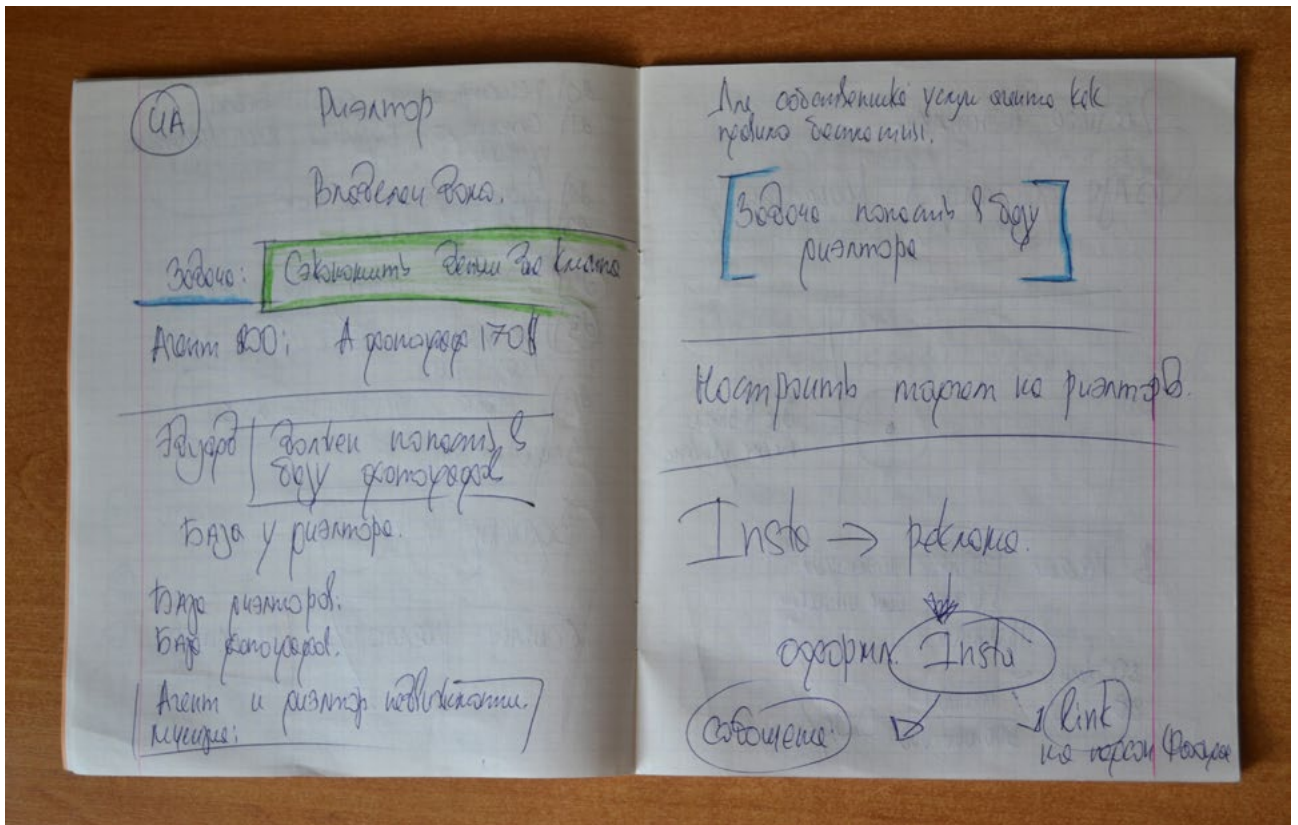 ЦА
Риэлтор
Владелец дома.
Задача: Сэкономить деньги для клиента
Агент 800; А фотограф 170$
Эдуард должен попасть в
базу фотографов
База у риэлтора.
База риэлторов.
База фотографов.
Агент и риэлтор недвижимости.
Для собственника услуги агента как
правило бесплатны.
Задача попасть в базу
риэлтора
Настроить таргет на риэлторов.
Insta → реклама.
оформл. Insta
сообщение
link
на